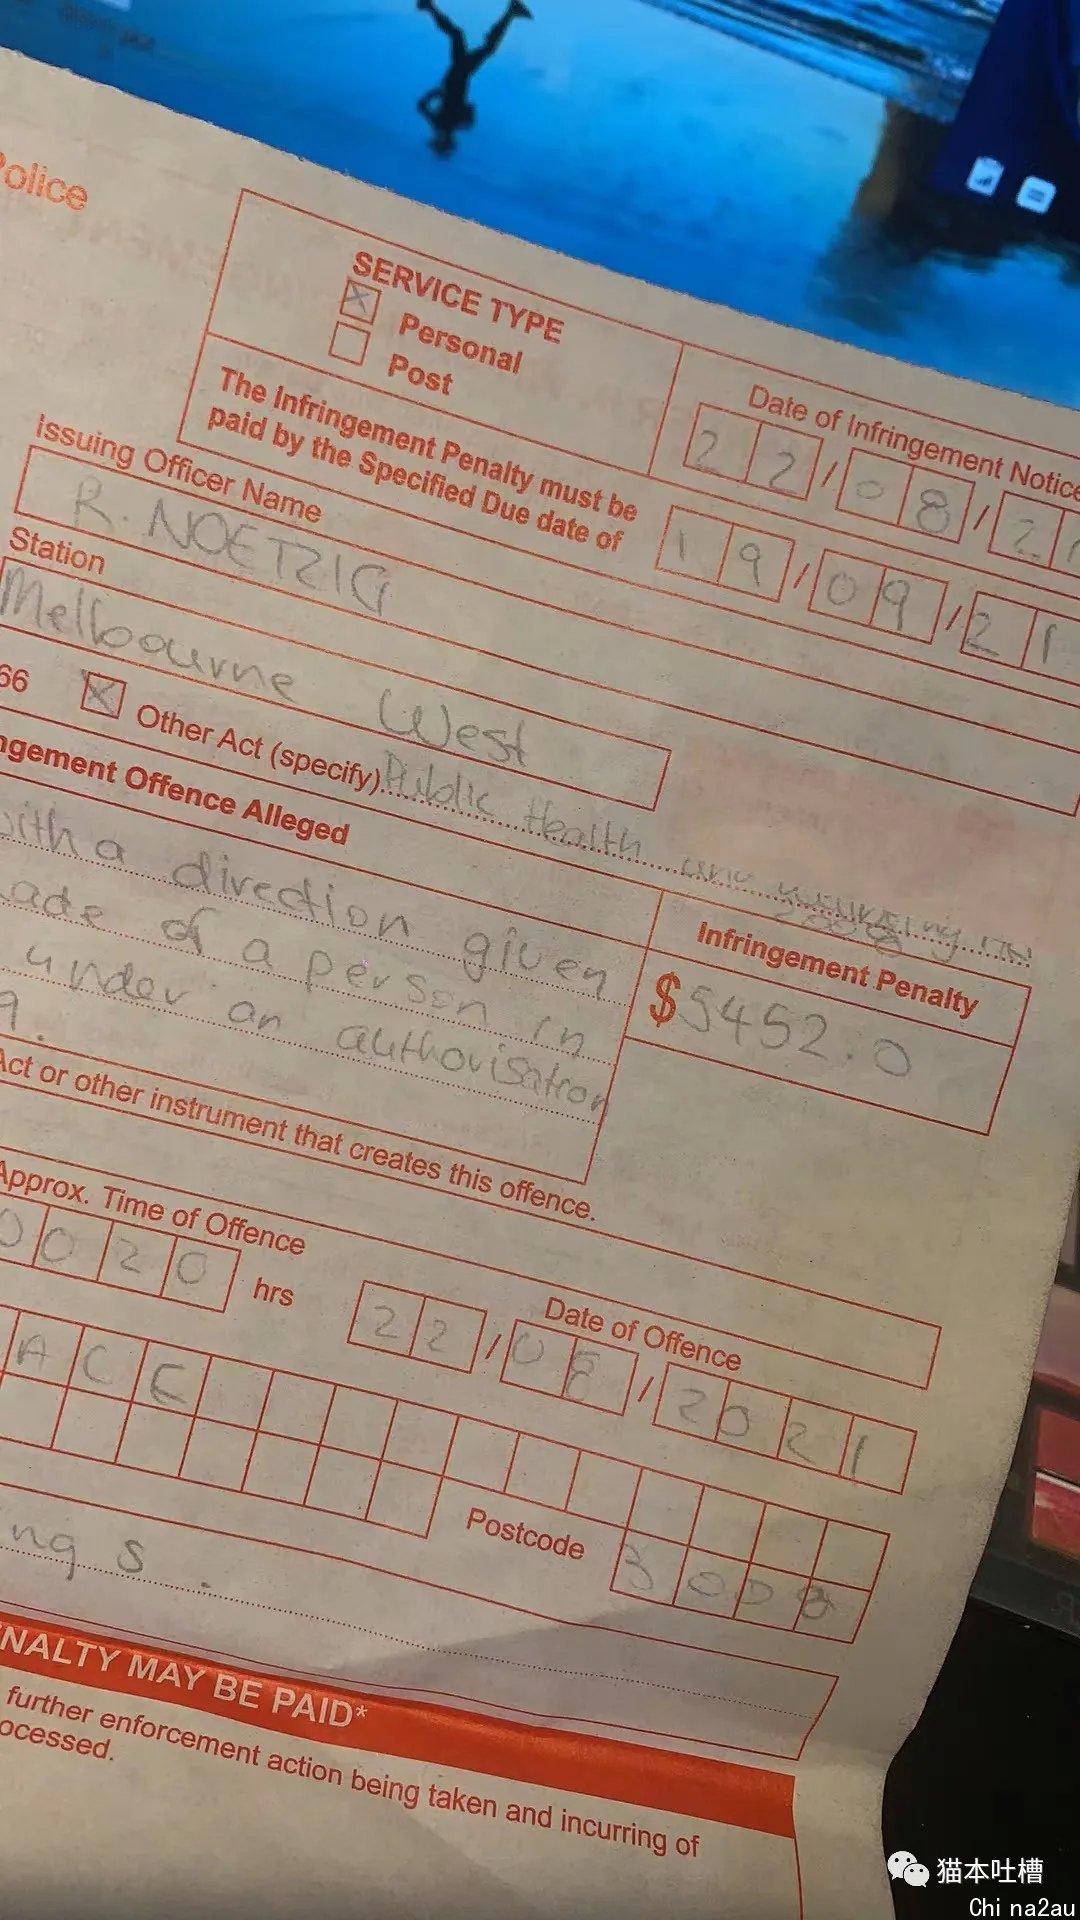 Police
SERVICE TYPE
X Personal
Post
Date of Infringement Notice
22/08/2
The Infringement Penalty must be
paid by the Specified Due date of
19/09/21
Issuing Officer Name
R. NOETZIG
Station
Melbourne West
66 X Other Act (specify) Public Health
ngement Offence Alleged
with a direction given
ade of a person in
under an authorisation
9.
Infringement Penalty
$5452.0
Act or other instrument that creates this offence.
Approx. Time of Offence
0020 hrs
Date of Offence
22/08/2021
ACE
Postcode 3008
ng s.
NALTY MAY BE PAID*
further enforcement action being taken and incurring of
ocessed.
猫本吐槽
China2au